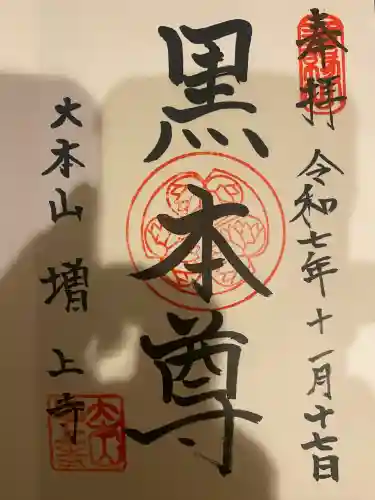 奉拝
令和七年十一月十七日
黒本尊
大本山 増上寺